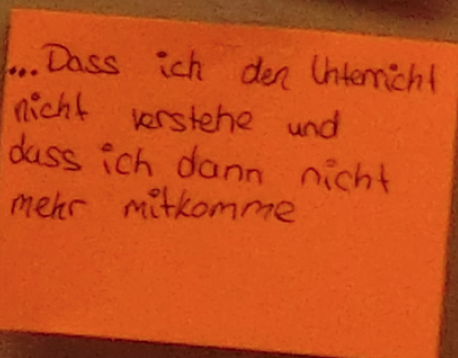 ...Dass ich den Unterricht
nicht verstehe und
dass ich dann nicht
mehr mitkomme